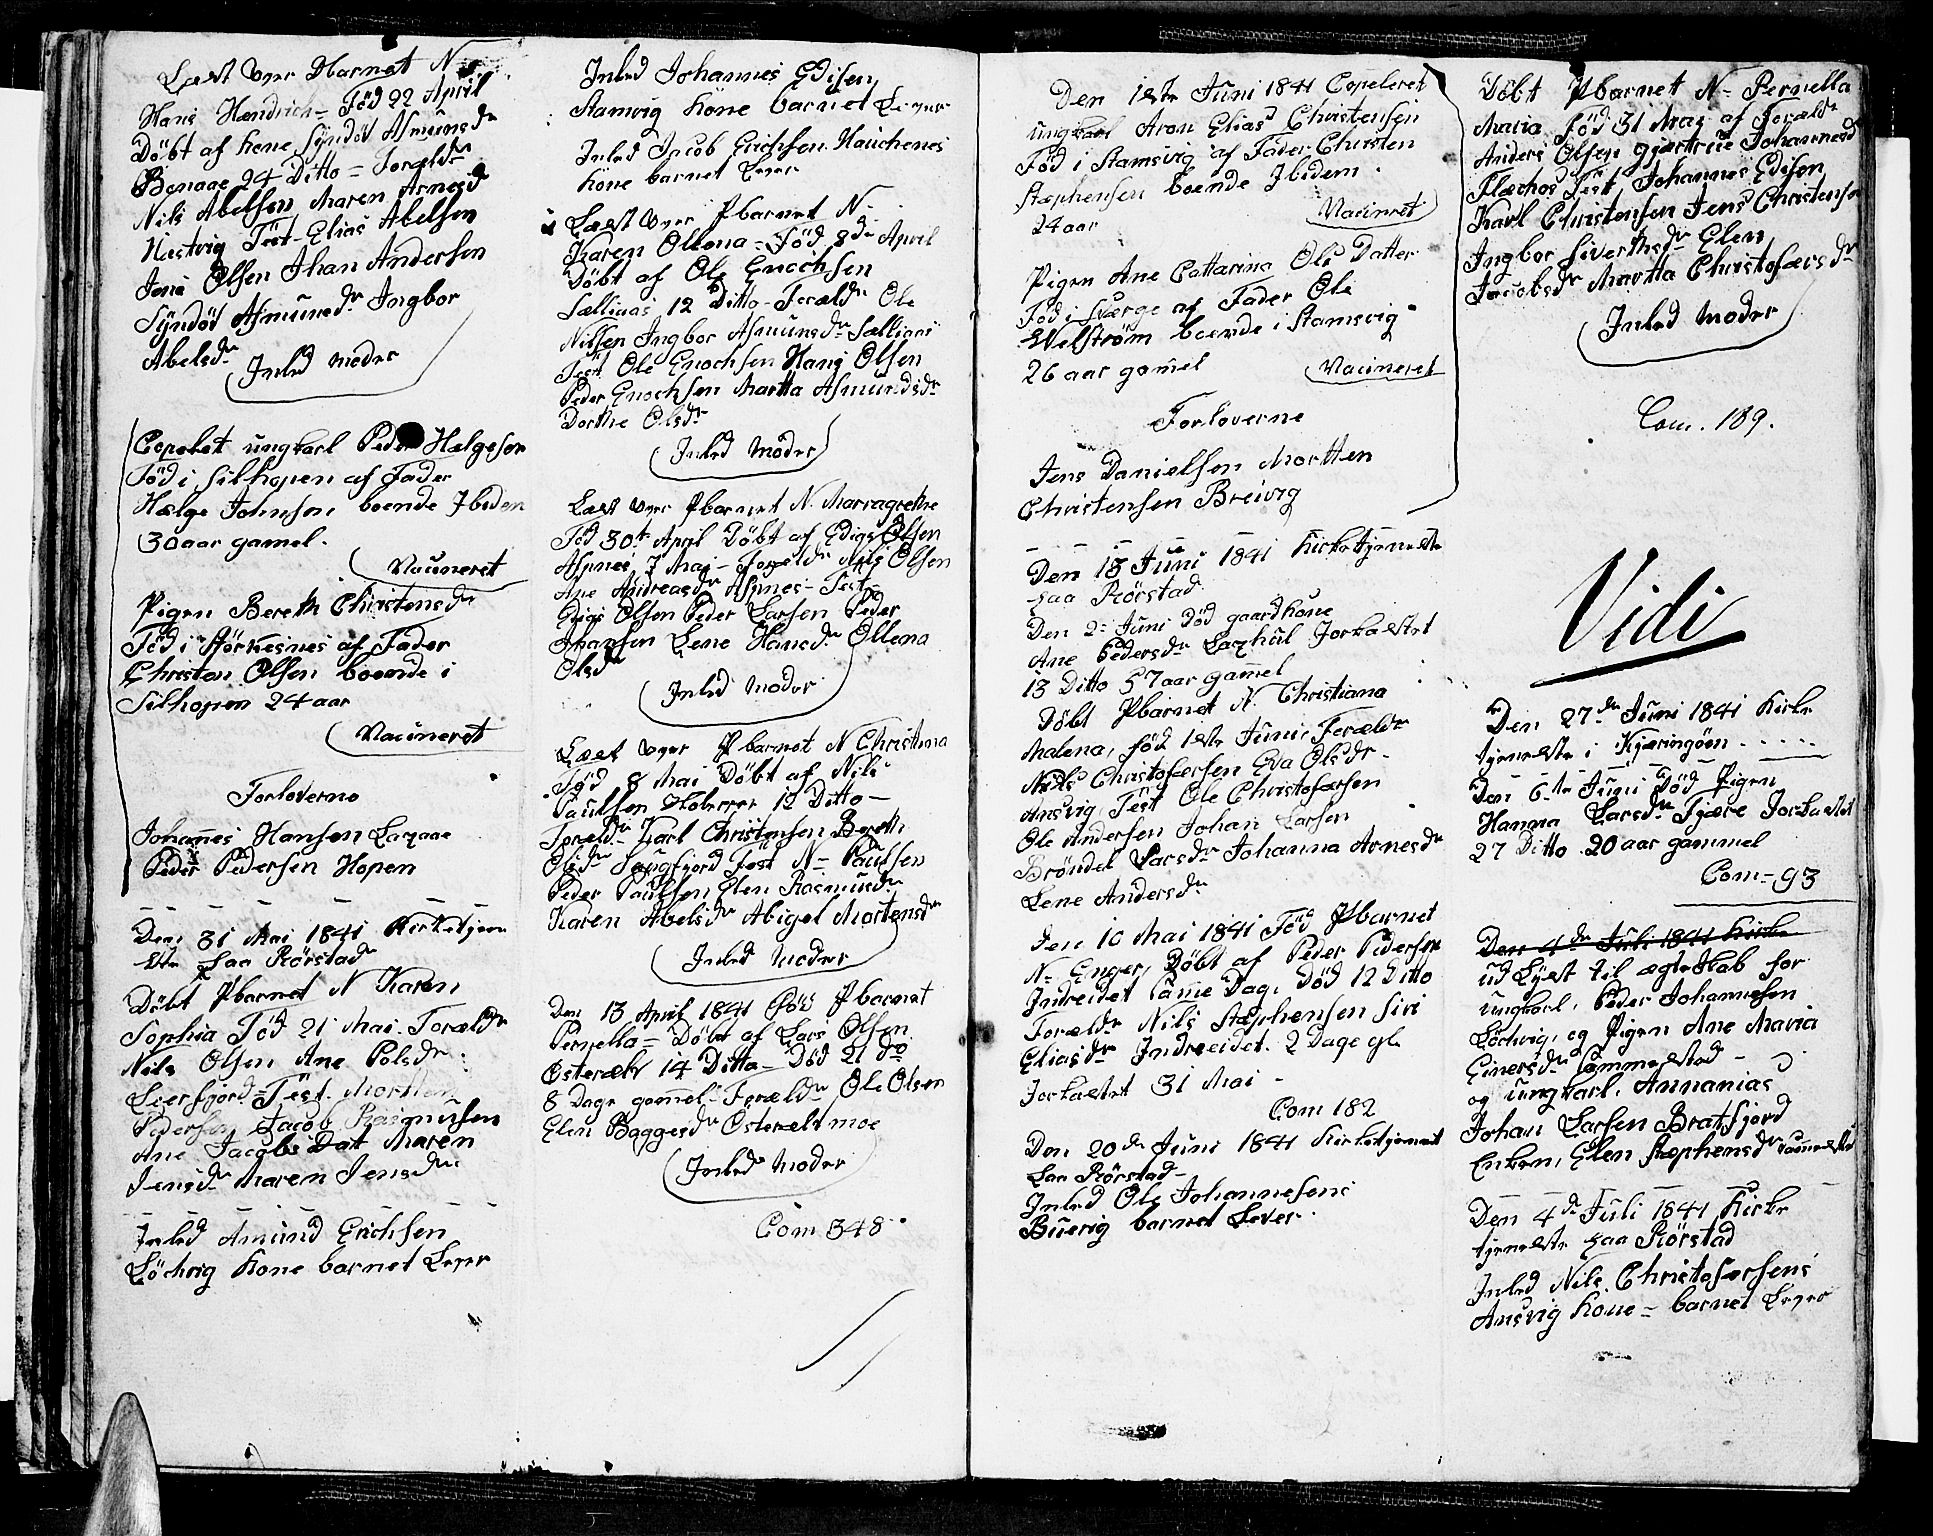 Læst over Pbarnet N
Hans Hendrich = Föd 22 April
Döbt af Kone Syndöv Asmunsdr
24 Ditto = Foreldr
Nils Abelsen Maren Arnesd
Test = Elias Abelsen
Jens Olsen Jhan Andersen
Syndöv Asmunsdr Ingbor
Abelsdr
Inled moder
Copelet ungkarl Peder Helgesen
Föd i Silhopen af Fader
Helge Johnsen boende Ibiden
30 aar gamel.
Vacineret
Pigen Bereth Christensdr
Föd i Störkesnes af Fader
Christen Olsen boende i
Silhopen 24 aar
Vacineret
Forloverne
Johannes Hansen
Peder Pedersen Hopen
Den 31 Mai 1841 Kirketjen
este paa Rörstad
Döbt Pbarnet N Karen
Sophia Föd 21 Mai. Foreldr
Nils Olsen Ane Polsdr
Leerfjord = Test. Morten
Pedersen Jacob Rasmusen
Ane Jacobs Datt Maren
Jensdr Maren Jensdr
Inled Amund Erichsen
Löchvig Kone barnet Lever
Inled Johannes Edisen
Stamvig Kone barnet Lever
Inled Jacob Erichsen
Kone barnet Lever
Læst over Pbarnet N
Karen Ollena = Föd 8de April
Döbt af Ole Enochsen
12 Ditto = Foreldr Ole
Nilsen Ingbor Asmunsdr
Test Ole Enochsen Hans Olsen
Peder Enochsen Martta Asmundsdr
Dorthe Olsdr
Inled moder
Læst over Pbarnet N. Marragrethe
Föd 30te April Döbt af Edigs Olsen
Aspnes 7 Mai = Foreldr Nils Olsen
Ane Andreasdr Aspnes = Test =
Edigs Olsen Peder Larsen Peder
Jhansen Lene Hansdr Ollena
Olsdr
Inled moder
Læst over Pbarnet N Christina
Föd 8 Mai Döbt af Nils
Paulsen 12 Ditto =
Foreldr Karl Christensen Bereth
Olsdr Test N = Paulsen
Peder Paulsen Elen Rasmusdr
Karen Abelsdr Abigel Mortensdr
Inled moder
Den 13 April 1841 Föd Pbarnet
Pernella = Döbt af Lars Olsen
14 Ditto = Död 21 do
8 Dage gamel = Foreldr Ole Olsen
Elen Baggesdr
Inled moder
Com 348.
Den 1ste Juni 1841 Copeleret
ungkarl Aron Elias Christensen
Föd i Stamsvig af Fader Christen
Stephensen boende Ibidem
24 aar
Vacineret
Pigen Ane Cattarina Ols Datter
Föd i Sverge af Fader Ole
Velström boende i Stamsvig
26 aar gamel
Vacineret
Forloverne
Jens Danielsen Mortten
Christensen Breivig
Den 13 Juni 1841 Kirketjeneste
paa Rörstad
Den 2: Juni Död gaardkone
Ane Pedersdr Jorkastet
13 Ditto 57 aar gamel
Döbt Pbarnet N. Christiana
Malena, föd 1ste Juni, Foreldr
Nils Christofersen Eva Olsdr
Ansvig Test Ole Christofersen
Ole Andersen Johan Larsen
Bröndel Larsdr Johanna Arnesdr
Lene Andersdr
Den 10 Mai 1841 Föd Pbarnet
N = Enger, Döbt af Peder Pedersen
Indreidet Samme Dag, Död 12 Ditto
Foreldr Nils Stephensen Siri
Eliasdr Indreeidet. 2 Dage gl.
Jorkastet 31 Mai =
Com 182
Den 20de Juni 1841 Kirketjenest
paa Rörstad =
Inled Ole Johannesens
Buevig barnet Lever.
Döbt Pbarnet N = Pernella
Maria föd 31 Mai af Foreldr
Anders Olsen Gjertrue Johannesd
Test Johannes Edisen
Karl Christensen Jens Christensen
Ingbor Siverthsdr Elen
Jacobsdr Martta Christofersdr
Inled moder
Com. 189.
Vidi
Den 27de Juni 1841 Kirke
tjeneste i Kjæringöen
Den 6te Juni Död Pigen
Hanna Larsdr Fjære Jorkastet
27 Ditto 20 aar gammel
Com = 93
Den 4de Juli 1841 Kirke
ud Lyest til ægteskab for
ungkarl, Peder Johannesen
Löchvig, og Pigen Ane Maria
Einersdr
og ungkarl, Annanias
Johan Larsen Bratfjord
Enken, Elen Stephensdr
Den 4de Juli 1841 Kirke
tjeneste paa Rörstad
Inled Nils Christofersens
Ansvig Kone = barnet Lever